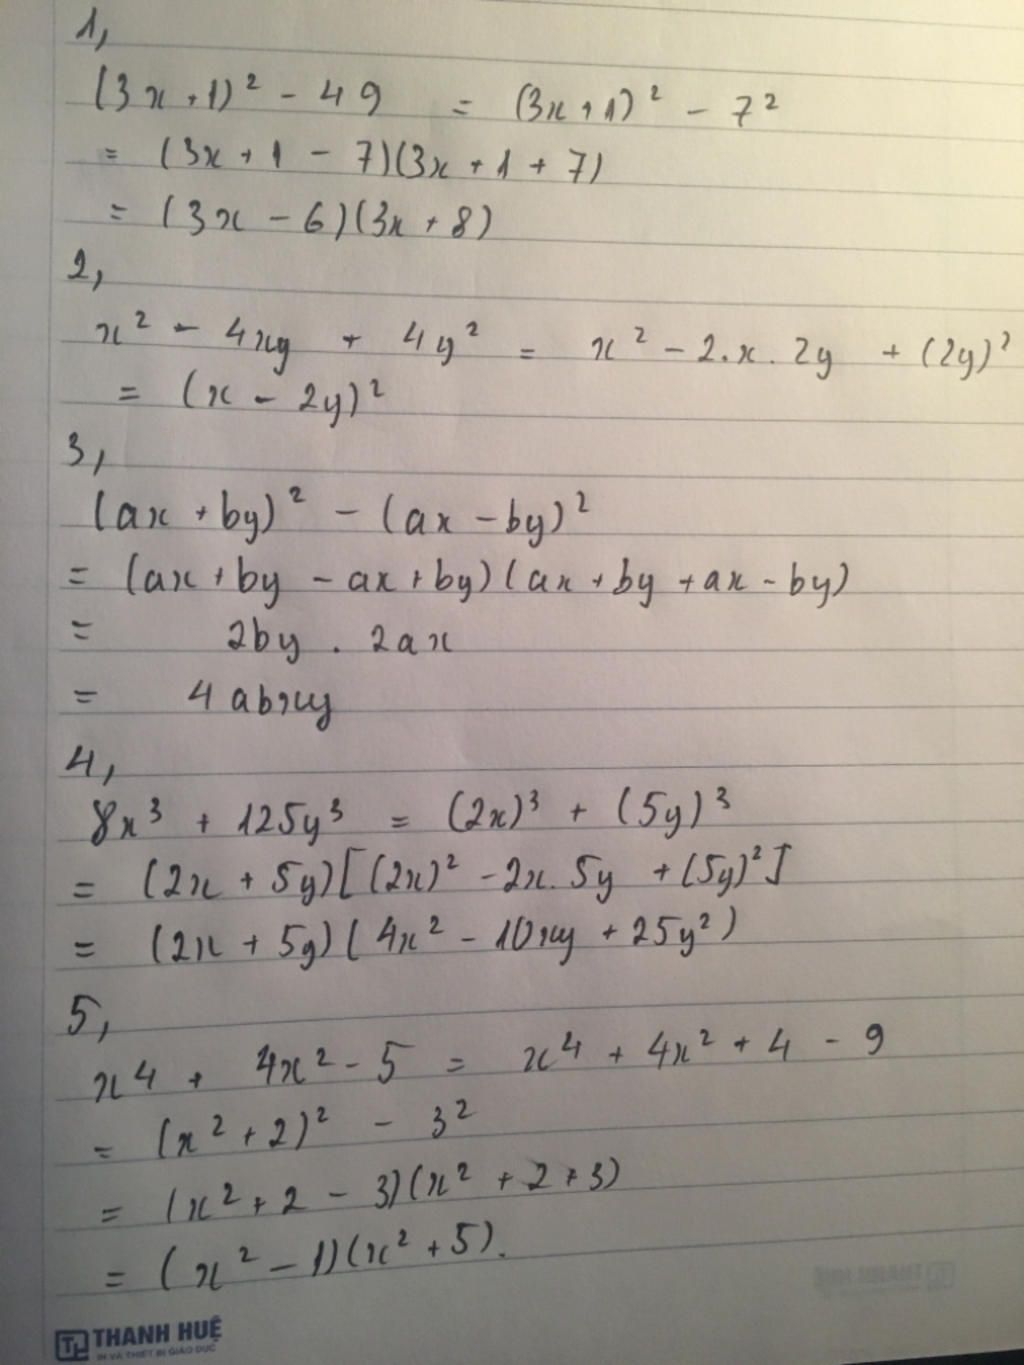 1,
(3x+1)² - 49 = (3x+1)² - 7²
= (3x+1 - 7)(3x+1+7)
= (3x - 6)(3x+8)
2,
x² - 4xy + 4y² = x² - 2.x.2y + (2y)²
= (x - 2y)²
3,
(ax+by)² - (ax-by)²
= (ax+by - ax+by)(ax+by+ax-by)
= 2by . 2ax
= 4abxy
4,
8x³ + 125y³ = (2x)³ + (5y)³
= (2x + 5y)[(2x)² - 2x.5y + (5y)²]
= (2x + 5y)(4x² - 10xy + 25y²)
5,
x⁴ + 4x² - 5 = x⁴ + 4x² + 4 - 9
= (x² + 2)² - 3²
= (x² + 2 - 3)(x² + 2 + 3)
= (x² - 1)(x² + 5).
THANH HUỆ
IN VÀ THIẾT BỊ GIÁO DỤC